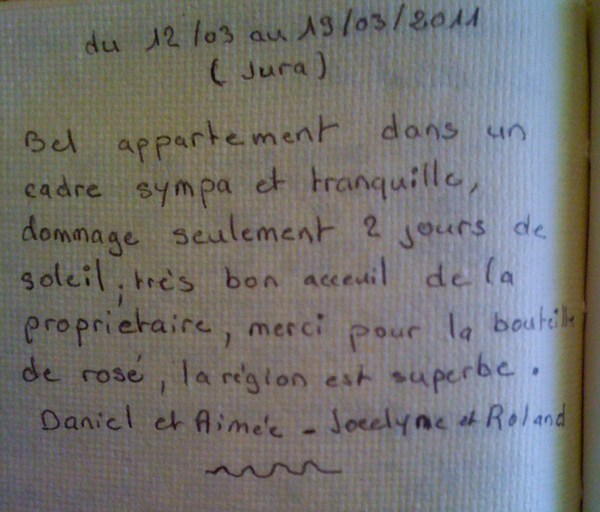 du 12/03 au 19/03/2011
( Jura )
Bel appartement dans un
cadre sympa et tranquille,
dommage seulement 2 jours de
soleil ; très bon acceuil de la
propriétaire, merci pour la bouteille
de rosé, la région est superbe .
Daniel et Aimée - Jocelyne et Roland